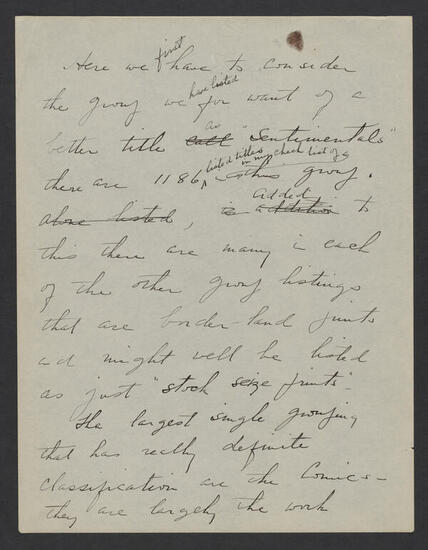 Here we first have to consider
the group we have listed for want of a
better title as ~~call~~ "Sentimentals"
there are 1186 listed titles in my check list of this group.
~~alone listed~~, ~~in addition~~ added to
this there are many in each
of the other group listings
that are border-land prints
and might well be listed
as just "stock size prints".
The largest single grouping
that has really definite
classification are the Comics -
they are largely the work